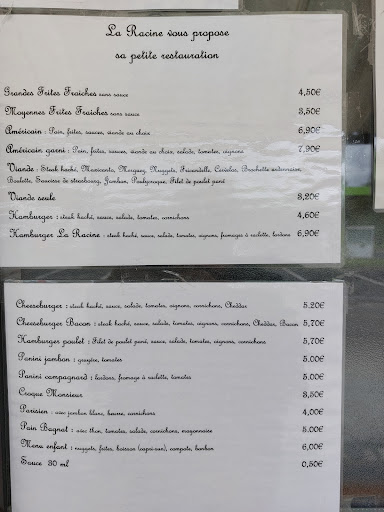 La Racine vous propose
sa petite restauration
Grandes Frites Fraiches sans sauce 4,50€
Moyennes Frites Fraiches sans sauce 3,50€
Américain : Pain, frites, sauces, viande au choix 6,90€
Américain garni : Pain, frites, sauces, viande au choix, salade, tomates, oignons 7,90€
Viande : Steak haché, Mexicanta, Merguez, Nuggets, Fricandelle, Cervelas, Brochette ardennaise,
Boulette, Saucisse de strasbourg, Jambon, Poulycroque, Filet de poulet pané
Viande seule 3,20€
Hamburger : steak haché, sauce, salade, tomates, cornichons 4,60€
Hamburger La Racine : steak haché, sauce, salade, tomates, oignons, fromages à raclette, lardons 6,90€
Cheeseburger : steak haché, sauce, salade, tomates, oignons, cornichons, Cheddar 5.20€
Cheeseburger Bacon : steak haché, sauce, salade, tomates, oignons, cornichons, Cheddar, Bacon 5,70€
Hamburger poulet : Filet de poulet pané, sauce, salade, tomates, oignons, cornichons 5,70€
Panini jambon : gruyère, tomates 5.00€
Panini campagnard : lardons, fromage à raclette, tomates 5.00€
Croque Monsieur 3,50€
Parisien : avec jambon blanc, beurre, cornichons 4,00€
Pain Bagnat : avec thon, tomates, salade, cornichons, mayonnaise 5.00€
Menu enfant : nuggets, frites, boisson (capri-sun), compote, bonbon 6,00€
Sauce 30 ml 0,50€